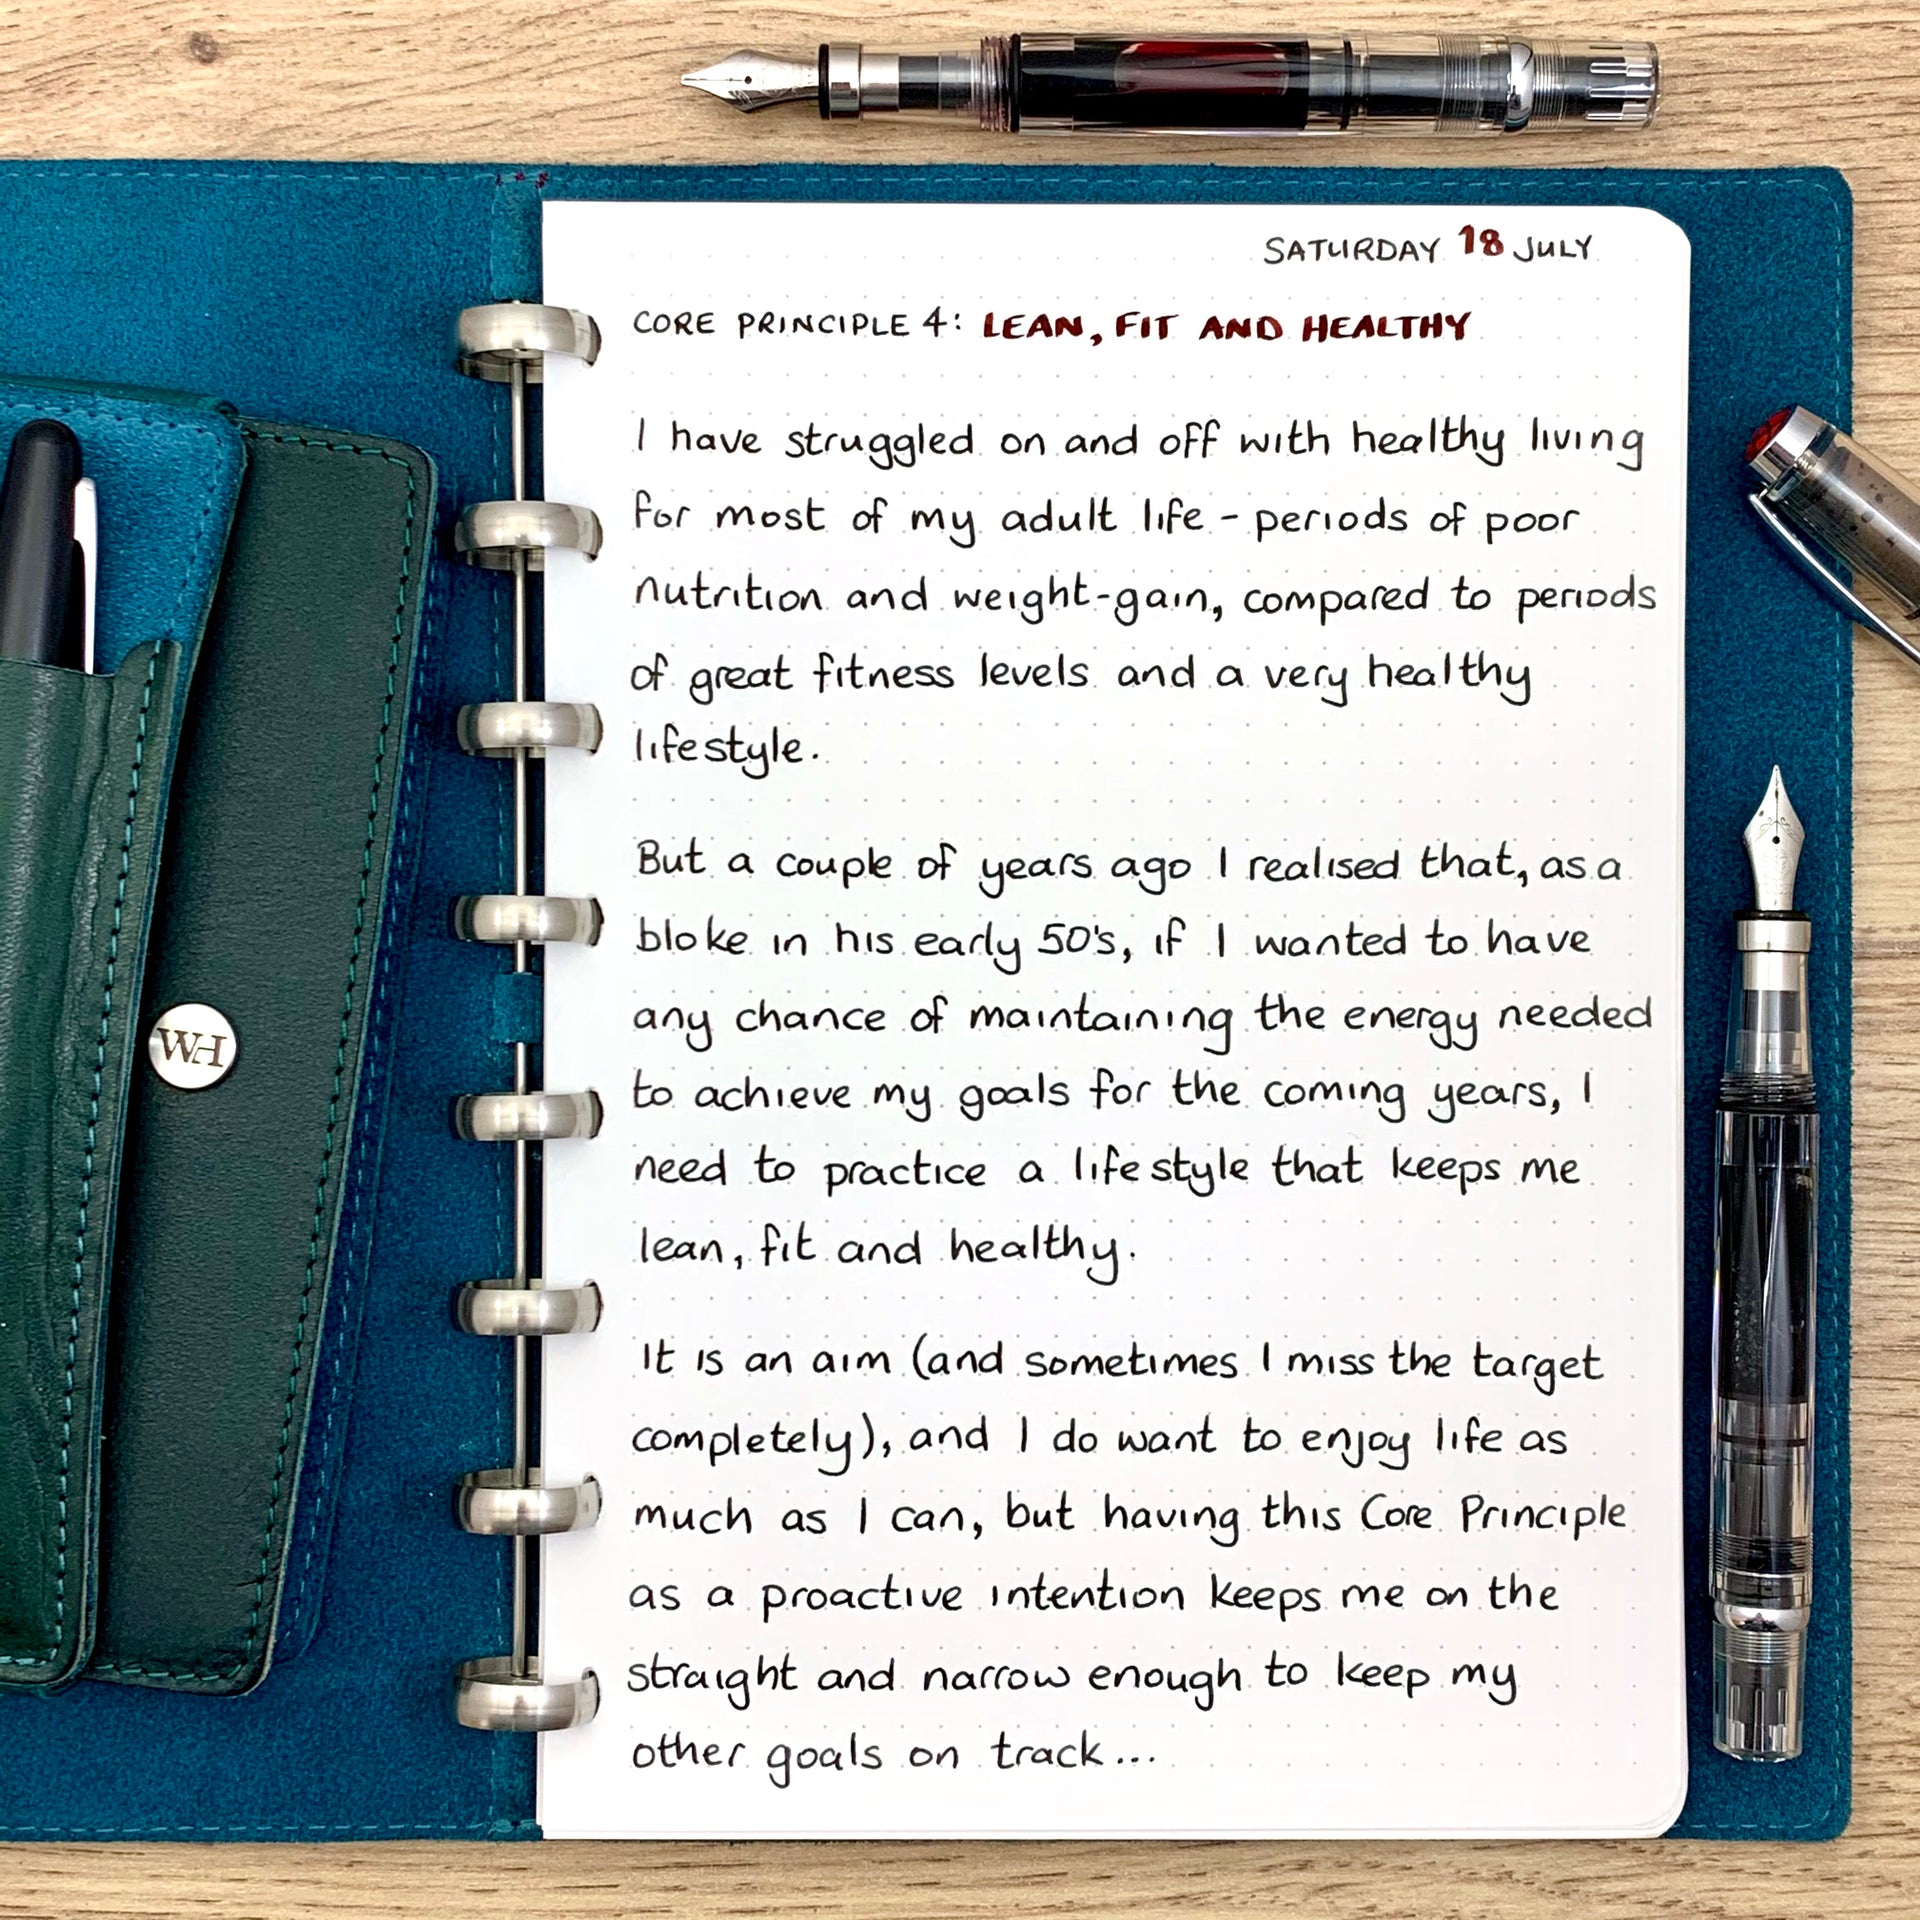 SATURDAY 18 JULY
CORE PRINCIPLE 4: LEAN, FIT AND HEALTHY
I have struggled on and off with healthy living
for most of my adult life - periods of poor
nutrition and weight-gain, compared to periods
of great fitness levels and a very healthy
lifestyle.
But a couple of years ago I realised that, as a
bloke in his early 50's, if I wanted to have
any chance of maintaining the energy needed
to achieve my goals for the coming years, I
need to practice a lifestyle that keeps me
lean, fit and healthy.
It is an aim (and sometimes I miss the target
completely), and I do want to enjoy life as
much as I can, but having this Core Principle
as a proactive intention keeps me on the
straight and narrow enough to keep my
other goals on track...
WH